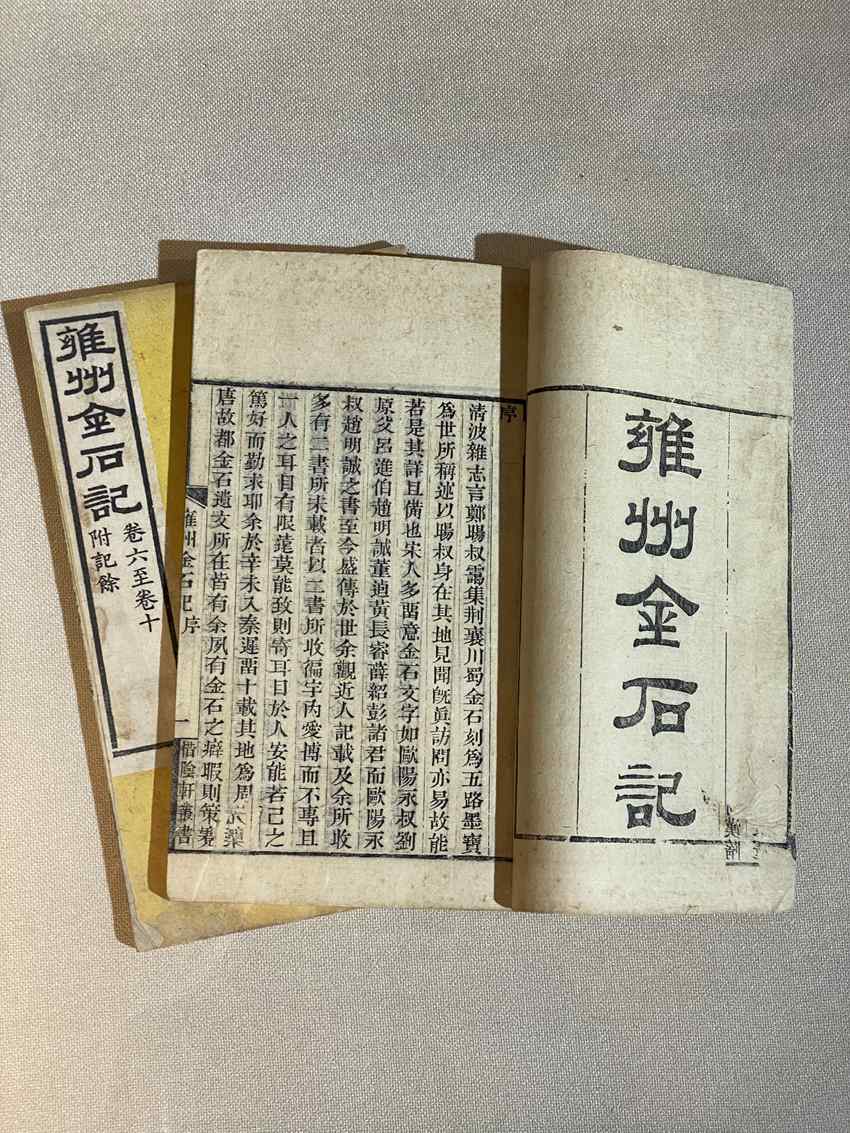 雍州金石記
序
清波雜志言鄭暘叔靄集荆襄川蜀金石刻爲五路墨寶
爲世所稱述以暘叔身在其地見聞旣眞訪問亦易故能
若是其詳且備也宋人多畱意金石文字如歐陽永叔劉
原父呂進伯趙明誠董逌黃長睿薛紹彭諸君而歐陽永
叔趙明誠之書至今盛傳於世余觀近人記載及余所收
多有二書所未載者以二書所收徧宇內愛博而不專且
一人之耳目有限莫能致則寄耳目於人安能若己之
篤好而勤求耶余於辛未入秦遲畱十載其地爲周
唐故都金石遺文所在皆有余夙有金石之癖暇則策蹇
雍州金石記序
一
惜陰軒叢書
雍州金石記
卷六至卷十
附記餘